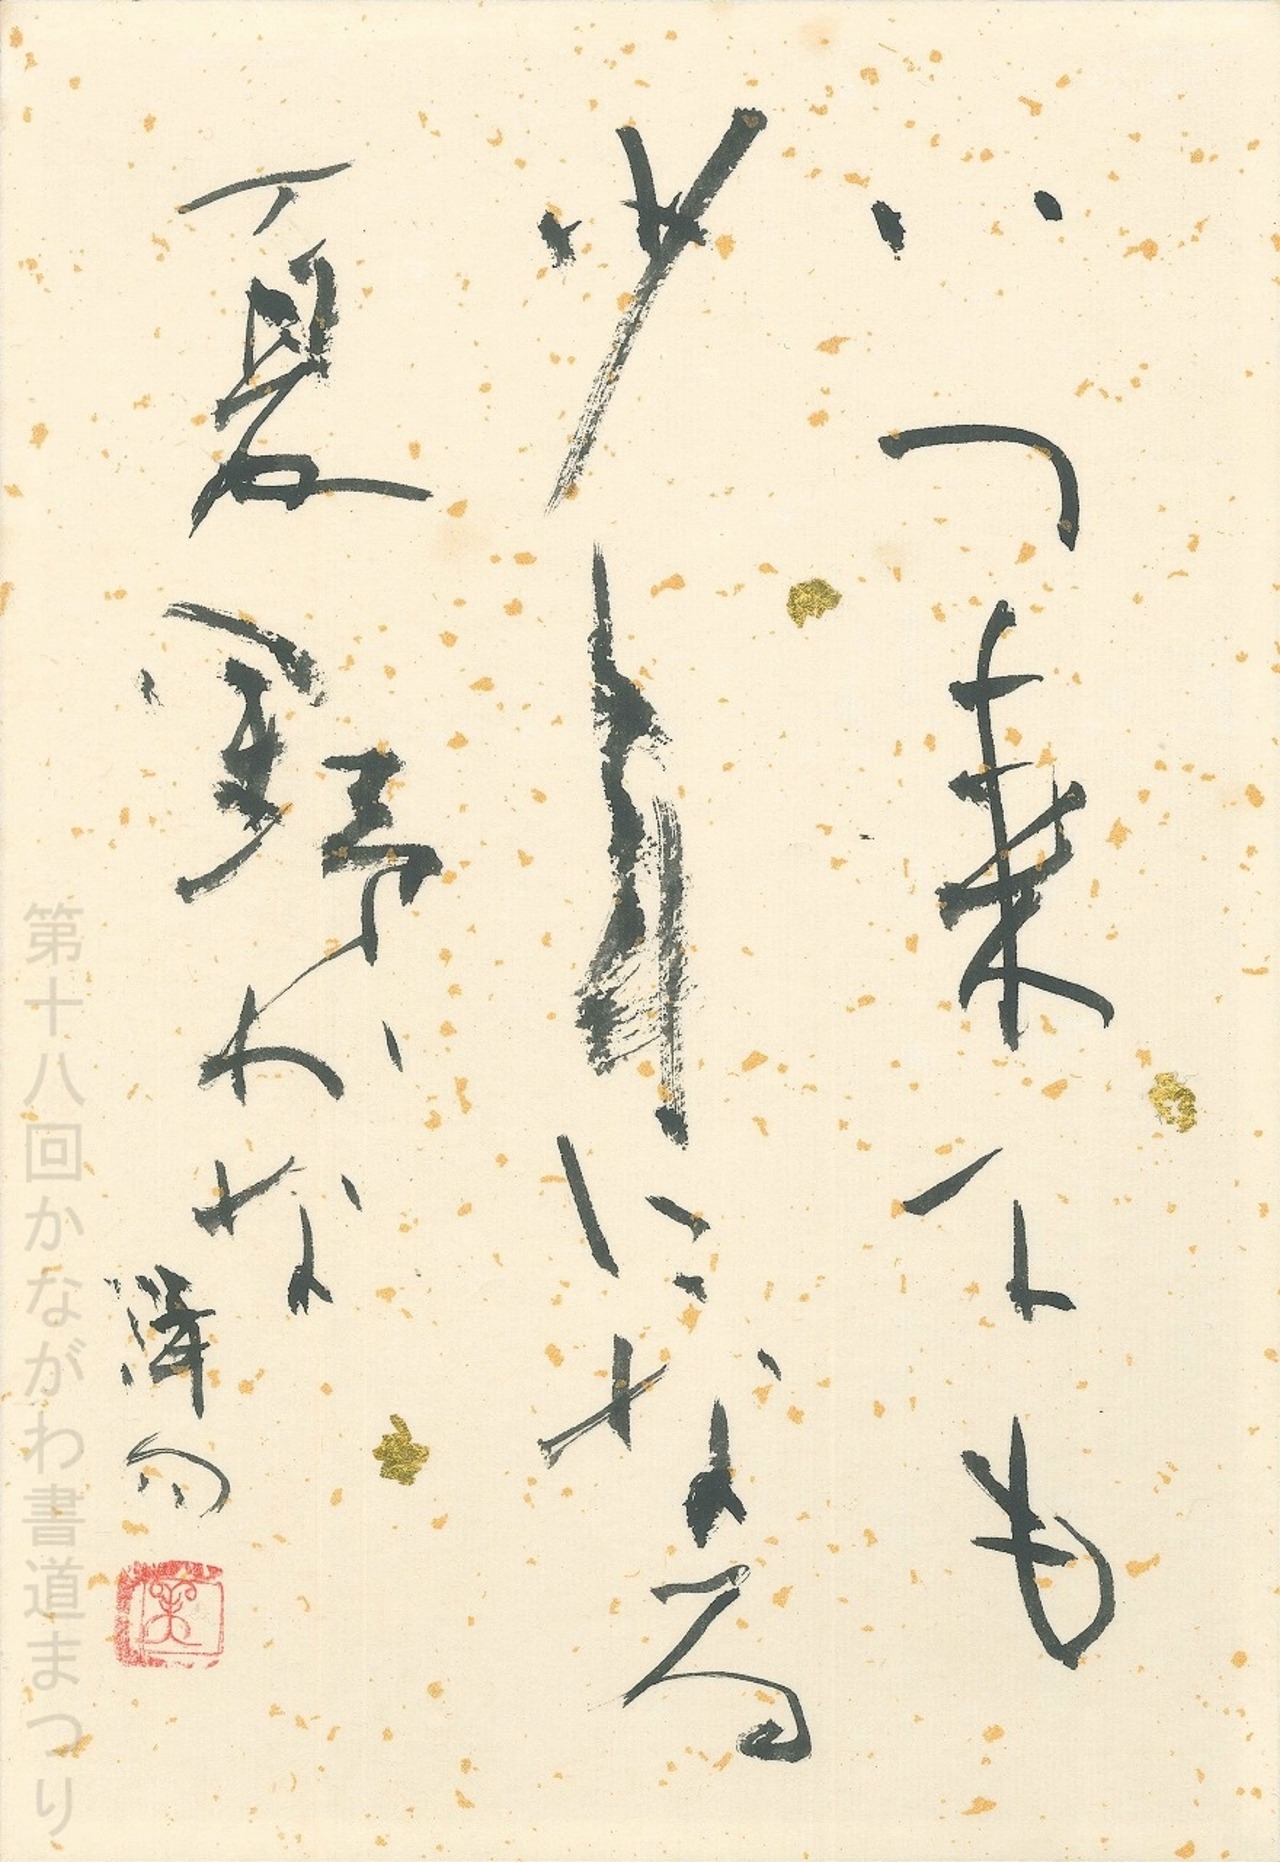 いつ来ても
少年になる
夏野かな
第十八回かながわ書道まつり